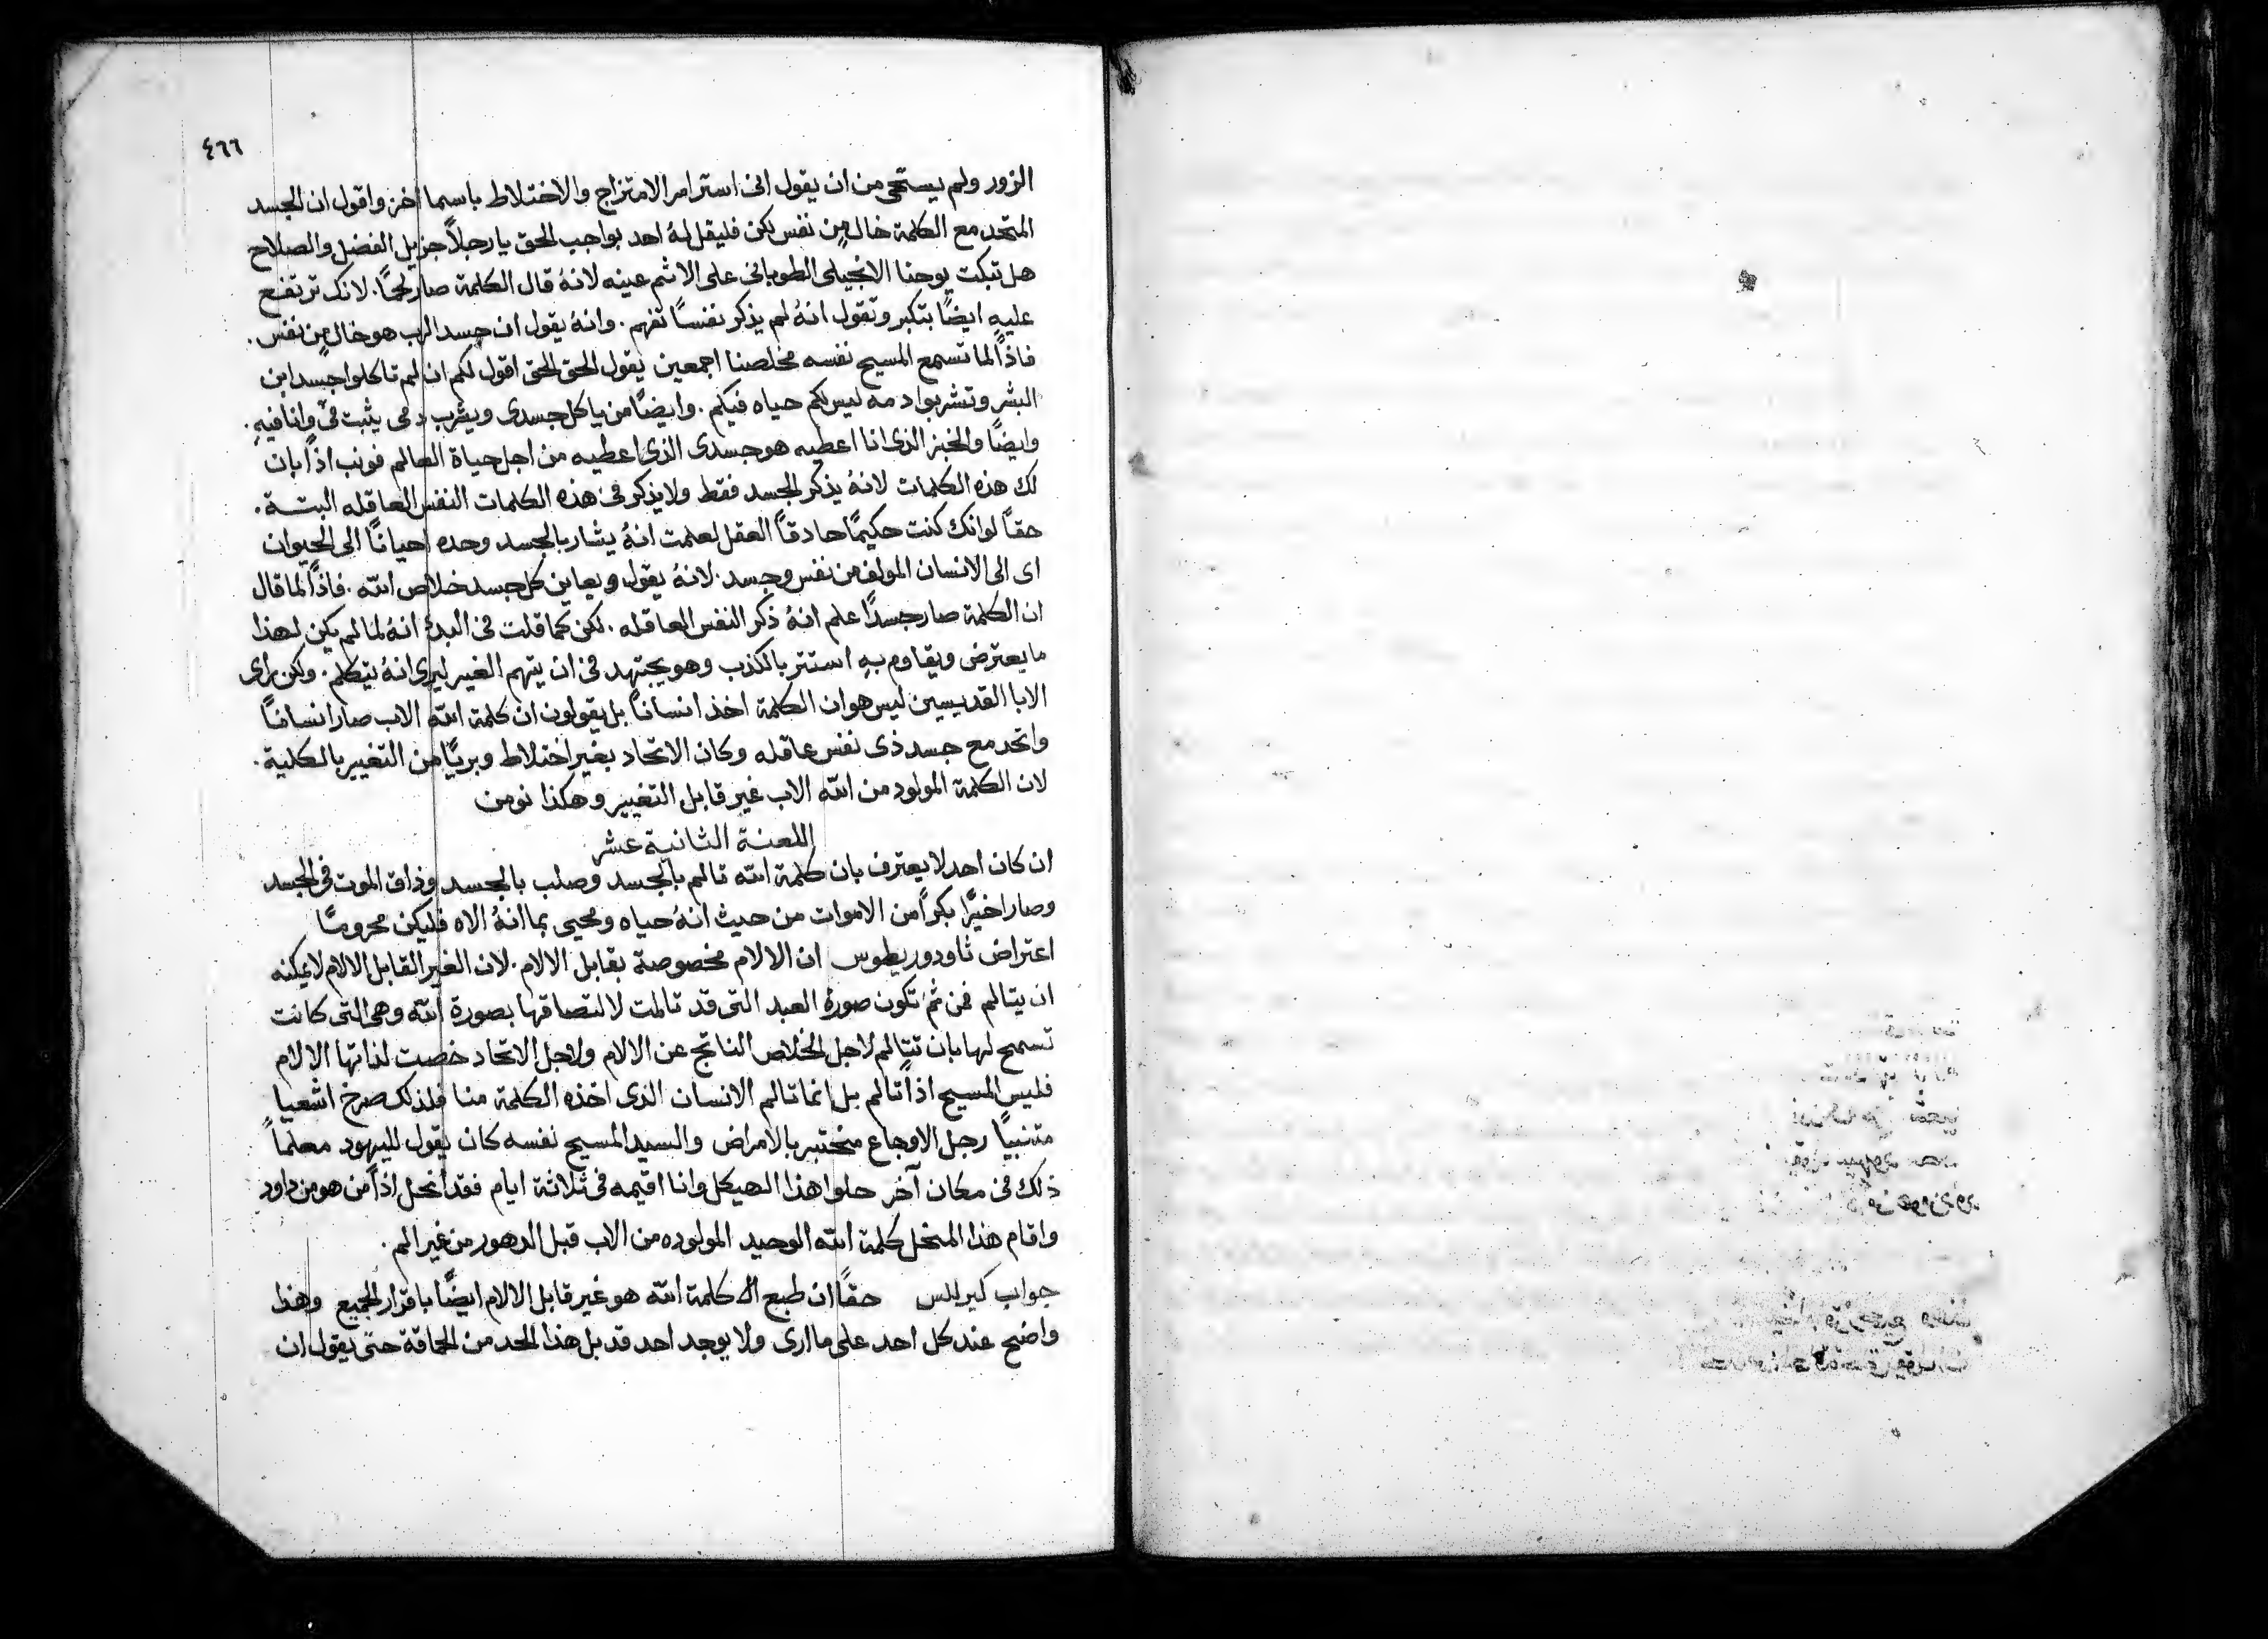 ٤٦٦
الزور ولم يستحى من ان يقول انى استر امر الامتزاج والاختلاط باسما اخر واقول ان الجسد
المتحد مع الكلمة خالٍ من نفس لكن فليقل لهُ احد بواجب الحق يا رجلاً جزيل الفضل والصلاح
هل تبكت يوحنا الانجيلى الطوبانى على الاثم عينه لانهُ قال الكلمة صار لحماً. لانك ترتفع
عليهِ ايضاً بتكبر وتقول انهُ لم يذكر نفساً تفهم. وانهُ يقول ان جسد الرب هو خالٍ من نفس.
فاذاً لما تسمع المسيح نفسه مخلصنا اجمعين يقول الحق الحق اقول لكم ان لم تاكلوا جسد ابن
البشر وتشربوا دمه ليس لكم حياه فيكم. وايضاً من ياكل جسدى ويشرب دمى يثبت فىّ وانا فيهِ.
وايضاً والخبز الذى انا اعطيه هو جسدى الذى اعطيه من اجل حياة العالم فونب اذاً بان
لك هذه الكلمات لانهُ يذكر الجسد فقط ولا يذكر فى هذه الكلمات النفس العاقله البتة.
حقاً لو انك كنت حكيماً حادقاً العقل لعلمت انهُ يشار بالجسد وحده احياناً الى الحيوان
اى الى الانسان المولف من نفس وجسد. لانهُ يقول ويعاين كل جسد خلاص الله. فاذاً لما قال
ان الكلمة صار جسداً علم انهُ ذكر النفس العاقله. لكن كما قلت فى البدء انهُ لما لم يكن لهذا
ما يعترض ويقاوم بهِ استتر بالكذب وهو يجتهد فى ان يتهم الغير ليرى انهُ يتكلم. ولكن راى
الابا القديسين ليس هو ان الكلمة اخذ انساناً بل يقولون ان كلمة الله الاب صار انساناً
واتحد مع جسد ذى نفس عاقله وكان الاتحاد بغير اختلاط وبرياً من التغيير بالكلية.
لان الكلمة المولود من الله الاب غير قابل التغيير وهكذا نومن
اللعنة الثانية عشر
ان كان احد لا يعترف بان كلمة الله تالم بالجسد وصلب بالجسد وذاق الموت فى الجسد
وصار اخيراً بكراً من الاموات من حيث انهُ حياه ومحيى بما انهُ الاه فليكن محروماً
اعتراض ثاودوريطوس ان الالام مخصوصة بقابل الالام. لان الغير القابل الالام لا يمكنه
ان يتالم فمن ثمَّ تكون صورة العبد التى قد تالمت لالتصاقها بصورة الله وهى التى كانت
تسمح لها بان تتالم لاجل الخلاص الناتج عن الالام ولاجل الاتحاد خصت لذاتها الالام
فليس المسيح اذاً تالم بل انما تالم الانسان الذى اخذه الكلمة منا فلذلك صرخ اشعيا
متنبياً رجل الاوجاع مختبر بالامراض والسيد المسيح نفسه كان يقول لليهود معلماً
ذلك فى مكان آخر حلوا هذا الهيكل وانا اقيمه فى ثلاثة ايام فقد انحل اذاً من هو من داود
واقام هذا المنحل كلمة الله الوحيد المولوده من الاب قبل الدهور من غير الم.
جواب كيرللس حقاً ان طبع كلمة الله هو غير قابل الالام ايضاً باقرار الجميع وهذا
واضح عند كل احد على ما ارى ولا يوجد احد قد بل هذا الحد من الحماقة حتى يقول ان